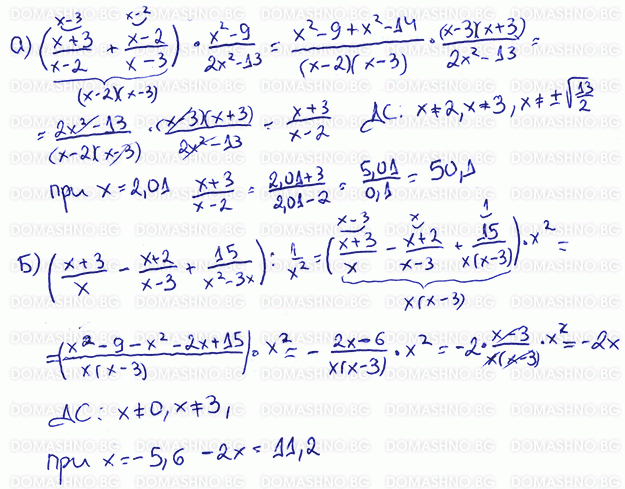 а) ((x+3)/(x-2) [x-3] + (x-2)/(x-3) [x-2]) · (x²-9)/(2x²-13) = (x²-9+x²-14)/((x-2)(x-3)) · ((x-3)(x+3))/(2x²-13) =
(x-2)(x-3)
= (2x²-13)/((x-2)(x-3)) · ((x-3)(x+3))/(2x²-13) = (x+3)/(x-2) ДС: x≠2, x≠3, x≠±√(13/2)
при x=2,01 (x+3)/(x-2) = (2,01+3)/(2,01-2) = 5,01/0,1 = 50,1
Б) ((x+3)/x - (x+2)/(x-3) + 15/(x²-3x)) : 1/x² = ((x+3)/x [x-3] - (x+2)/(x-3) [x] + 15/(x(x-3)) [1]) · x² =
x(x-3)
= ((x²-9-x²-2x+15)/(x(x-3))) · x² = - (2x-6)/(x(x-3)) · x² = -2 · (x-3)/(x(x-3)) · x² = -2x
ДС: x≠0, x≠3,
при x=-5,6 -2x = 11,2
DOMASHNO.BG